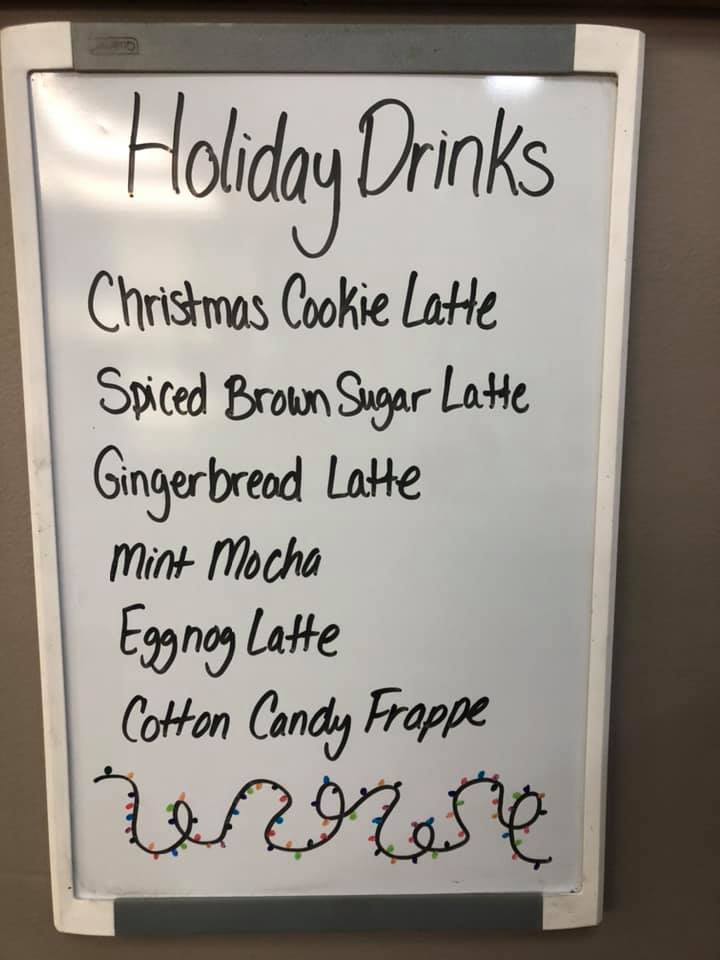 Quartet
Holiday Drinks
Christmas Cookie Latte
Spiced Brown Sugar Latte
Gingerbread Latte
Mint Mocha
Eggnog Latte
Cotton Candy Frappe